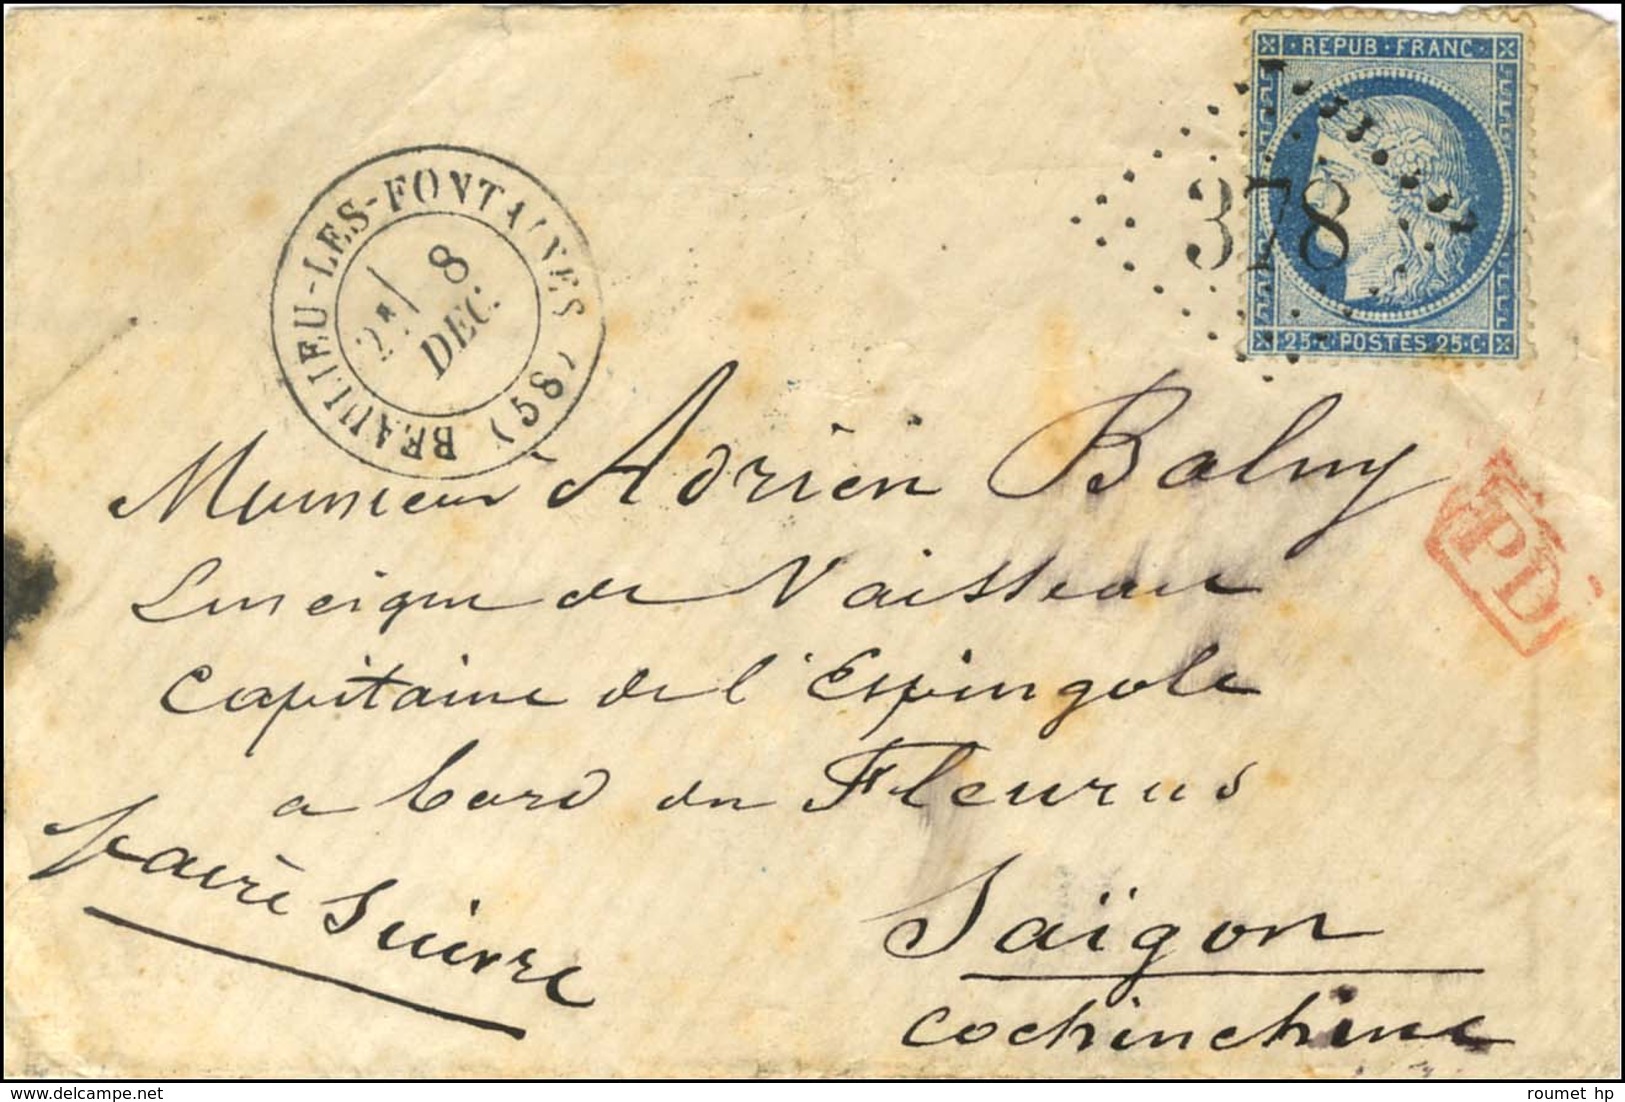 REPUB · FRANC
378
25·C POSTES 25·C
BEAULIEU-LES-FONTAINES (58)
8
DEC.
PD
Monsieur Adrien Balny
Enseigne de Vaisseau
Capitaine de l'Espingole
a bord du Fleurus
faire Suivre
Saïgon
Cochinchine
roumet hp